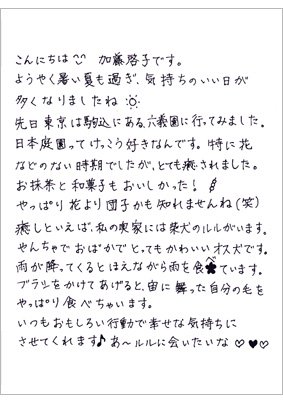 こんにちは 加藤啓子です。
ようやく暑い夏も過ぎ、気持ちのいい日が
多くなりましたね
先日東京は駒込にある、六義園に行ってみました。
日本庭園ってけっこう好きなんです。特に花
などのない時期でしたが、とても癒されました。
お抹茶と和菓子もおいしかった!
やっぱり花より団子かも知れませんね(笑)
癒しといえば、私の実家には柴犬のルルがいます。
やんちゃでおばかでとってもかわいいオス犬です。
雨が降ってくるとほえながら雨を食べています。
ブラシをかけてあげると、宙に舞った自分の毛を
やっぱり食べちゃいます。
いつもおもしろい行動で幸せな気持ちに
させてくれます♪ あ〜ルルに会いたいな ♡♥♡